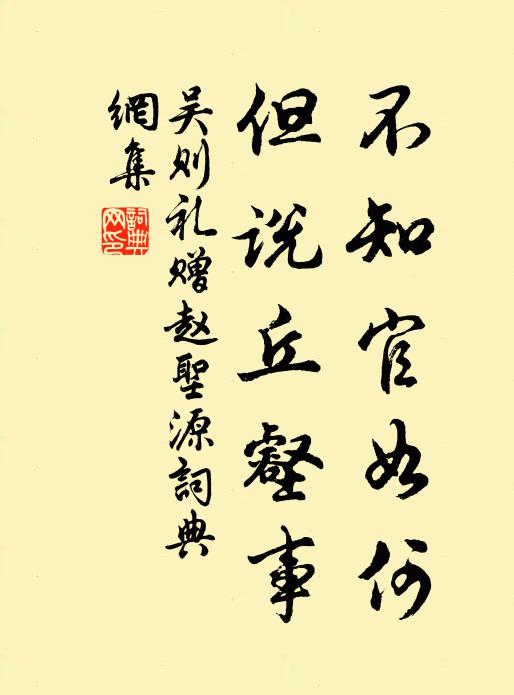 不知官如何
但说丘壑事
吴则礼赠赵聖源詞典
網集
詞典网印